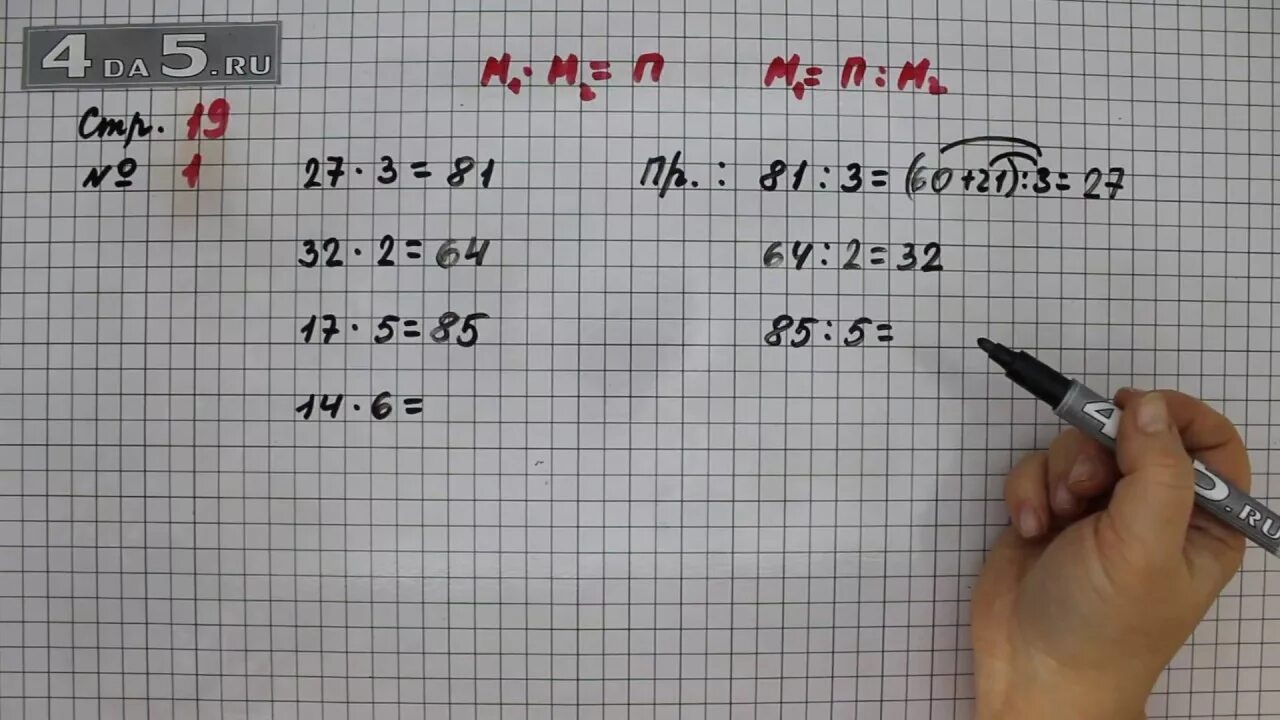 4DA5.RU
М₁ · М₂ = П
М₁ = П : М₂
Стр. 19
№ 1
27 · 3 = 81
Пр. : 81 : 3 = (60 + 21) : 3 = 27
32 · 2 = 64
64 : 2 = 32
17 · 5 = 85
85 : 5 =
14 · 6 =
4 5.RU